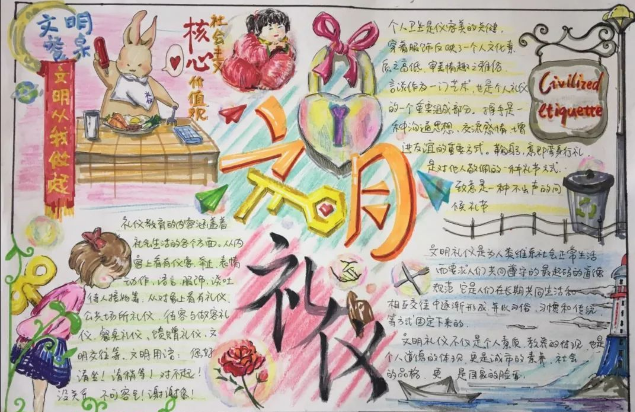 文明
礼仪
社会主义
核心
价值观
文明从我做起
Civilized
etiquette
个人卫生是仪容美的关键,
穿着服饰反映了一个人文化素
质之高低, 审美情趣之雅俗。
言谈作为一门艺术, 也是个人礼仪
的一个重要组成部分。握手是一
种沟通思想、交流感情、增
进友谊的重要方式。鞠躬, 意即弯身行礼,
是对他人敬佩的一种礼节方式。
致意是一种不出声的问
候礼节
礼仪教育的内容涵盖着
社会生活的各个方面。从内
容上看有仪容、举止、表情
动作、语言、服饰、谈吐
待人接物等, 从对象上看有个人礼仪、
公共场所礼仪、待客与做客礼
仪、餐桌礼仪、馈赠礼仪、文
明交往等。文明用语: 您好
请坐! 请稍等! 对不起!
没关系、不用客气! 谢谢您!
文明礼仪是为人类维系社会正常生活
而要求人们共同遵守的最起码的道德
规范, 它是人们在长期共同生活和
相互交往中逐渐形成, 并以风俗、习惯和传统
等方式固定下来的。
文明礼仪不仅是个人素质、教养的体现, 也是
个人道德的体现, 更是城市的素养、社会
的品格, 更是国家的脸面。